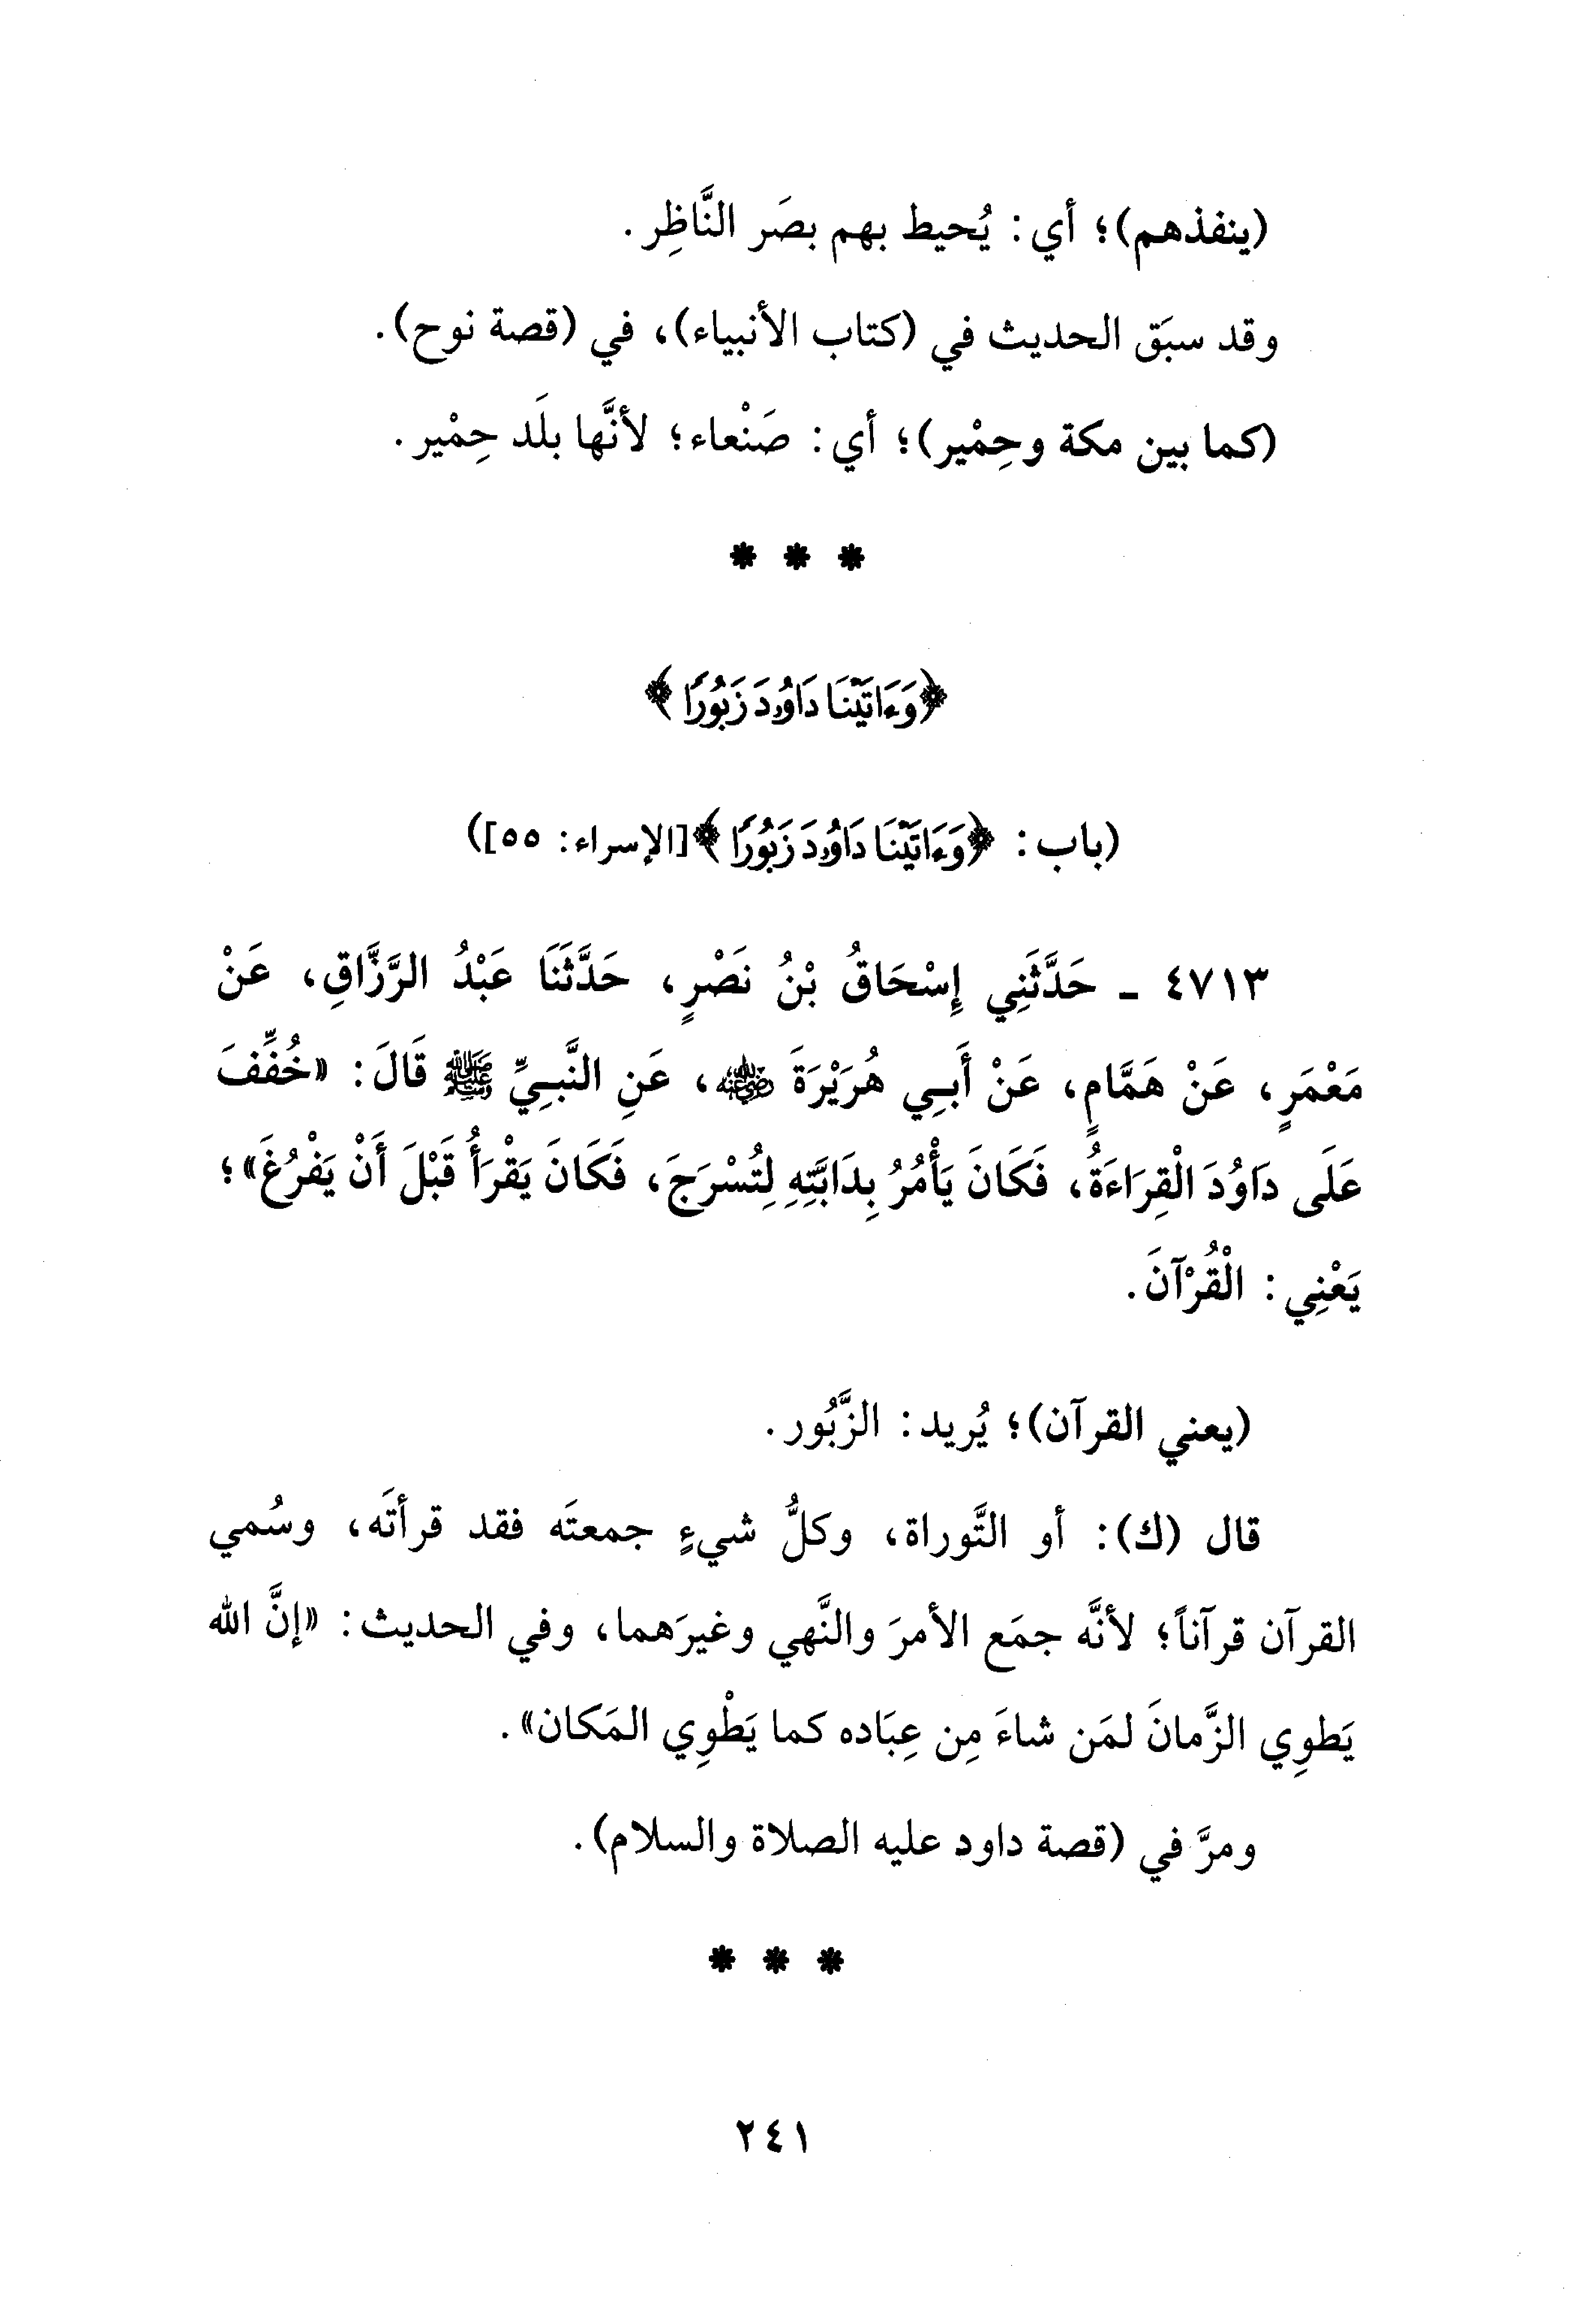 (ينفذهم)؛ أي: يُحيط بهم بصَر النَّاظِر.
وقد سبَق الحديث في (كتاب الأنبياء)، في (قصة نوح).
(كما بين مكة وحِمْير)؛ أي: صَنْعاء؛ لأنَّها بلَد حِمْير.
* * *
﴿وَءَاتَيْنَا دَاوُۥدَ زَبُورًا﴾
(باب: ﴿وَءَاتَيْنَا دَاوُۥدَ زَبُورًا﴾[الإسراء: ٥٥])
٤٧١٣ ـ حَدَّثَنِي إِسْحَاقُ بْنُ نَصْرٍ، حَدَّثَنَا عَبْدُ الرَّزَّاقِ، عَنْ
مَعْمَرٍ، عَنْ هَمَّامٍ، عَنْ أَبِي هُرَيْرَةَ رضي الله عنه، عَنِ النَّبِيِّ ﷺ قَالَ: «خُفِّفَ
عَلَى دَاوُدَ الْقِرَاءَةُ، فَكَانَ يَأْمُرُ بِدَابَّتِهِ لِتُسْرَجَ، فَكَانَ يَقْرَأُ قَبْلَ أَنْ يَفْرُغَ»؛
يَعْنِي: الْقُرْآنَ.
(يعني القرآن)؛ يُريد: الزَّبُور.
قال (ك): أو التَّوراة، وكلُّ شيءٍ جمعتَه فقد قرأتَه، وسُمي
القرآن قرآناً؛ لأنَّه جمَع الأمرَ والنَّهي وغيرَهما، وفي الحديث: «إنَّ الله
يَطوِي الزَّمانَ لمَن شاءَ مِن عِبَاده كما يَطْوِي المَكان».
ومرَّ في (قصة داود عليه الصلاة والسلام).
* * *
٢٤١